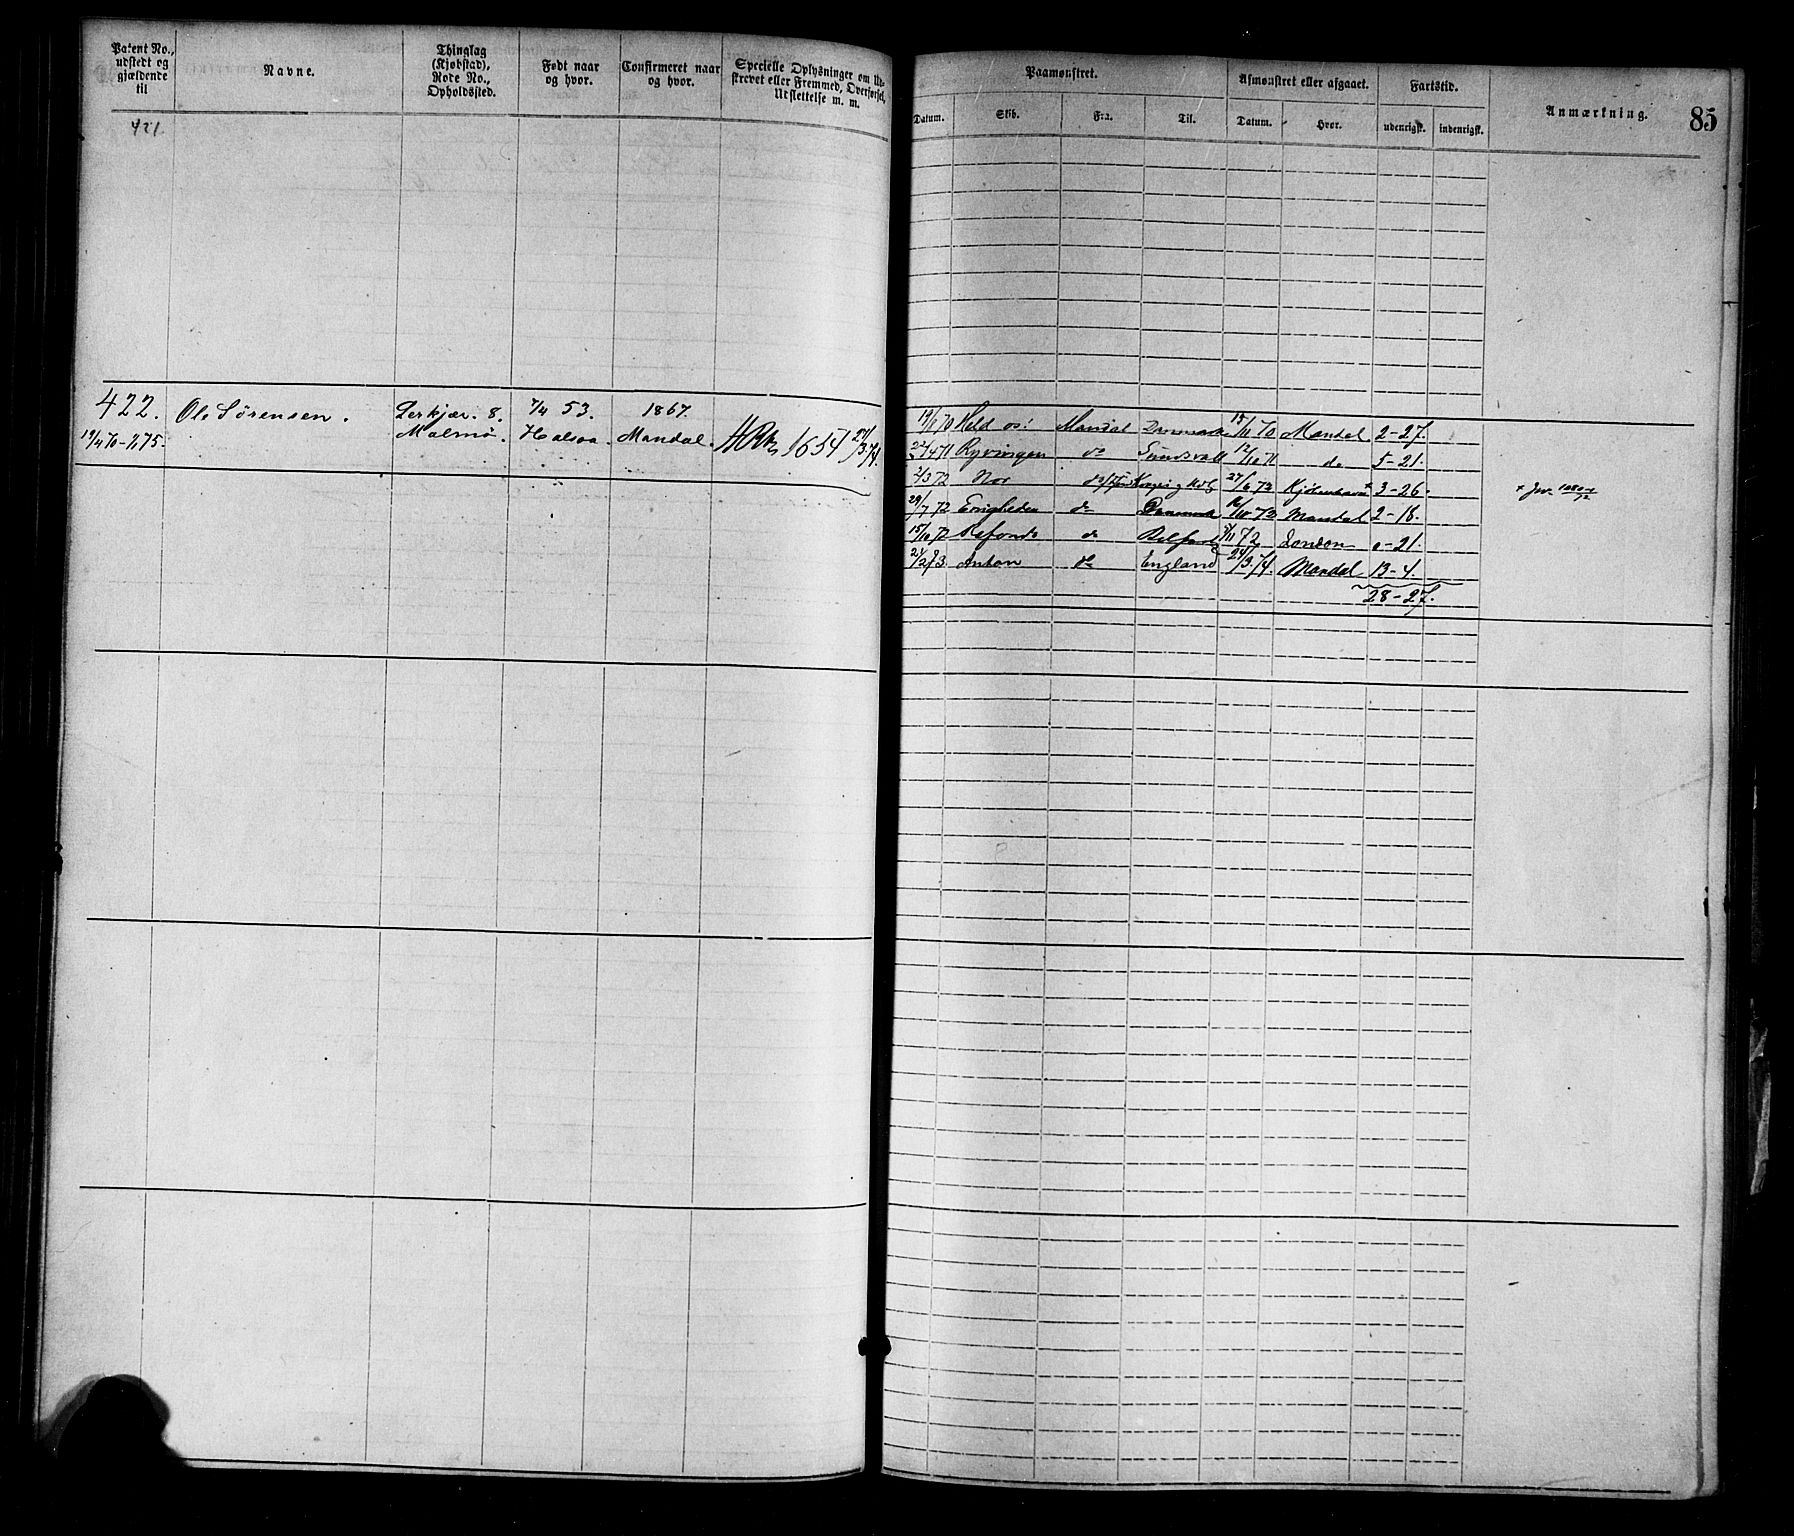 Patent No., udstedt og gjældende til
Navne.
Thinglag (Kjøbstad), Rode No., Opholdssted.
Født naar og hvor.
Confirmeret naar og hvor.
Specielle Oplysninger om Udskrevet eller Fremmed, Overførsel, Udslettelse m. m.
Paamønstret.
Datum.
Skib.
Fra.
Til.
Afmønstret eller afgaaet.
Datum.
Hvor.
Fartstid.
udenrigsk.
indenrigsk.
Anmærkning.
85
421
422. Ole Sørensen. 8. 7/4 53. 1867.
19/4 70 - 75. Malmø. Halsaa. Mandal. 1654 24/3 74.
19/8 70 Held os! Mandal Danmark 15/11 70 Mandal 2-27.
22/4 71 Ryvingen do Sundsvall 12/10 71 do 5-21.
2/3 72 Nor do 27/6 72 Kjøbenhavn + 3-26.
29/7 72 Enigheden do Danmark 16/10 72 Mandal 2-18.
15/10 72 do Belfast 5/11 72 London 0-21.
21/2 73 Anton do England 24/3 74. Mandal 13-4.
28-27.